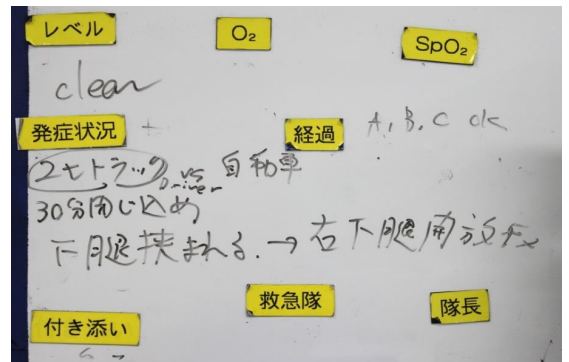 レベル O₂ SpO₂
clear
発症状況 経過 A, B, C ok
2tトラック Driver vs 自動車
30分閉じ込め
下腿挟まれる. → 右下腿開放Fx
救急隊 隊長
付き添い